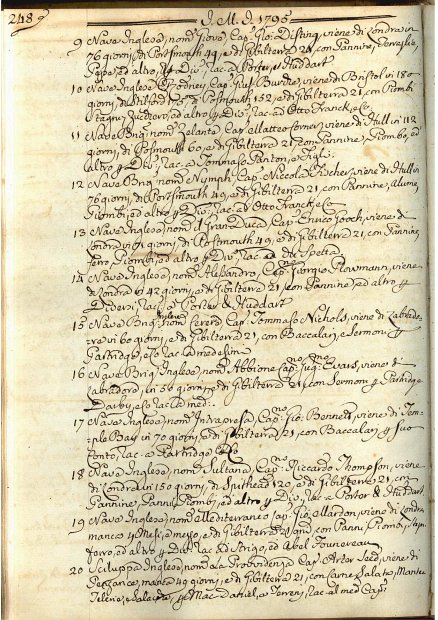 248 J. M. J. 1795
9 Nave Inglese, nom. Giove, Cap. Gio: Disting, viene di Londra in
76 giorni, di Portsmouth 49, e di Gibilterra 21, con Pannine, Terraglie
Pepe, ed altro, p Div. rac. a Porter, e Huddart
10 Nave Inglese Rodney, Cap. Giu. Burdie, viene di Bristol in 180
giorni, di Milford 175, di Portsmouth 152, e di Gibilterra 21, con Piombi
Stagni, Zucchero, ed altro p Div. rac. a Otto Franck, e C.
11 Nave Brig. nom. Zelanta, Cap. Matteo Corner, viene di Hull in 112
giorni, di Portsmouth 60, e di Gibilterra 21, con Pannine, Piombo, ed
altro p Div. rac. a Tommaso Panton, e Figl.
12 Nave Brig. nom. Nymph, Cap. Niccola Fischer, viene di Hull in
76 giorni, di Portsmouth 49, e di Gibilterra 21, con Pannine, Allume
Piombi, ed altro p Div. rac. a Otto Franck, e C.
13 Nave Inglese, nom. il Gran Duca, Cap. Enrico Goch, viene di
Londra in 71 giorni, di Portsmouth 49, e di Gibilterra 21, con Pannine
Ferro, Piombi, ed altro p Div. rac. a
14 Nave Inglese, nom. Alesandro, Cap. Giorgio Plowmann, viene
di Londra in 42 giorni, e di Gibilterra 21, con Pannine, ed altro p
Diversi, rac. a Porter & Huddart
15 Nave Brig. Inglese nom. Cap. Tommaso Nichols, viene di Labrador
in 60 giorni, e di Gibilterra 21, con Baccalari, e Sermoni p
Partridge, e C. rac. la medesima
16 Nave Brig. Inglese, nom. Abbione, Cap. Evars, viene di
Labrador, in 56 giorni, e di Gibilterra 21, con Sermoni p Partridge
Darby, e C. rac. la med.
17 Nave Inglese, nom. Intrapresa, Cap. Gio: Bennett, viene di Tem-
ple Bay in 70 giorni, e di Gibilterra 21, con Baccalari p suo
Conto, rac. a Partridge e C.
18 Nave Inglese, nom. Sultana, Cap. Riccardo Thompson, viene
di Londra in 150 giorni, di Spithead 120, e di Gibilterra 21, con
Pannine, Panni, Piombi, ed altro p Div. rac. a Porter & Huddart
19 Nave Inglese, nom. Mediterraneo, Cap. Gio: Mardon, viene di Londra
manca 4 Mesi, e mezzo, e di Gibilterra 21 giorni, con Panni, Piombi,
ferro, ed altro p Div. rac. ad Arrigo, ed Abel Fonnereau
20 Sciluppa Inglese, nom. la Providenza, Cap. Artor Teed, viene di
Penzance, manca 49 giorni, e di Gibilterra 21, con Carne Salata,
p Mac-Daniel, a Terreny, rac. al med. Cap.